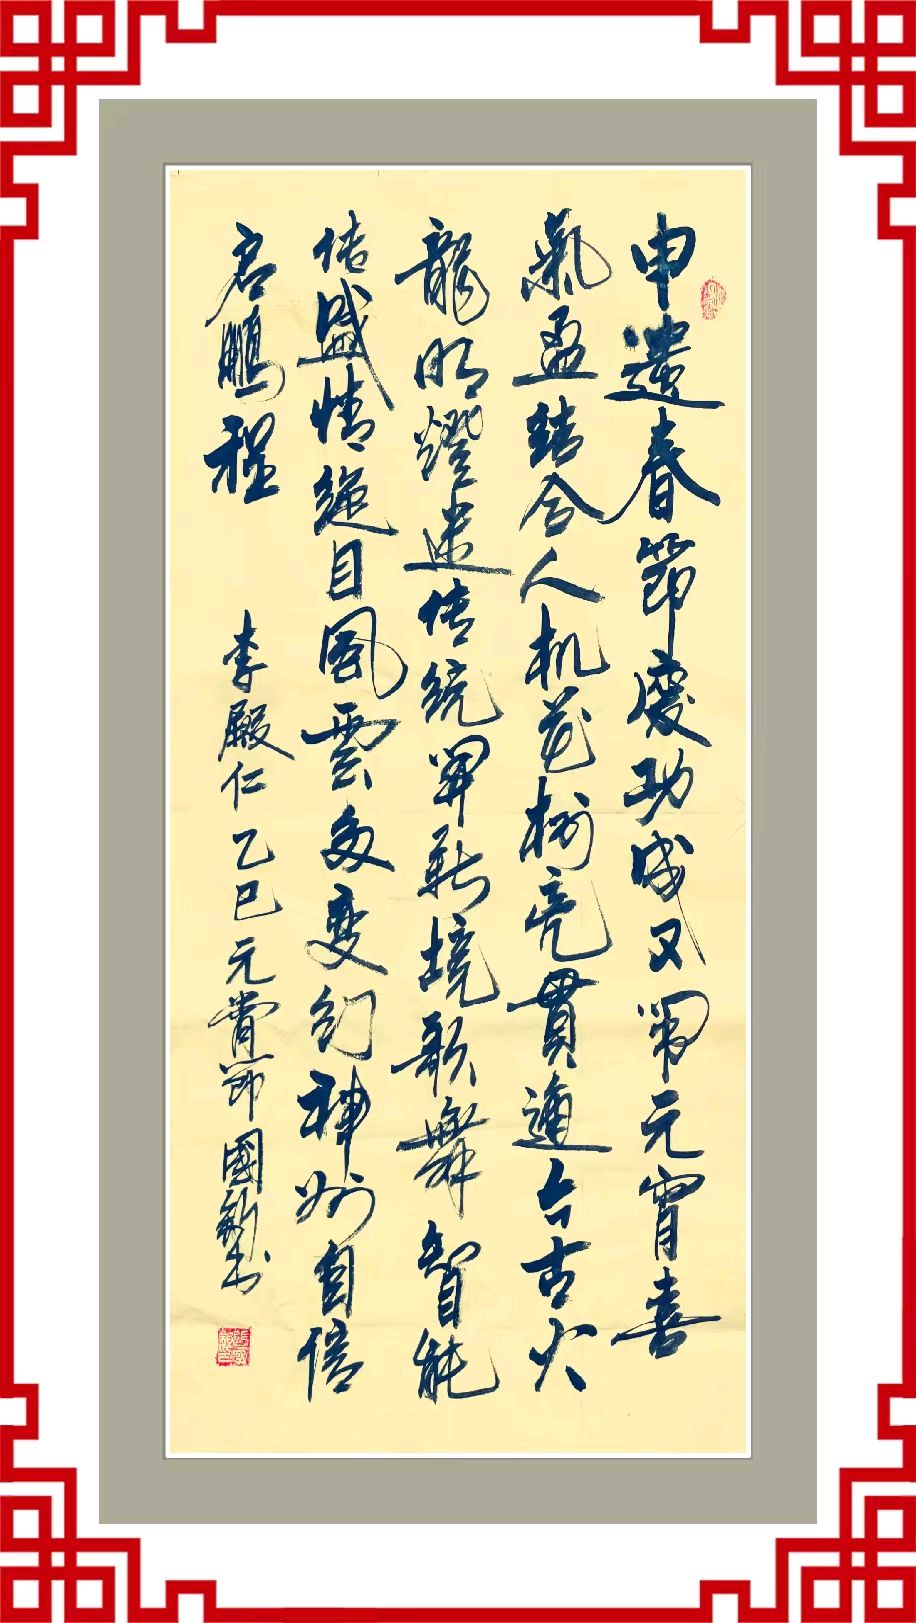 申遺春節慶功成又鬧元宵喜
氣盈結合人机花樹亮貫通今古火
龍明燈迷传統開新境歌舞智能
传盛情絕目風雲多变幻神州自信
启鵬程 李殿仁 乙巳元宵節 國新书